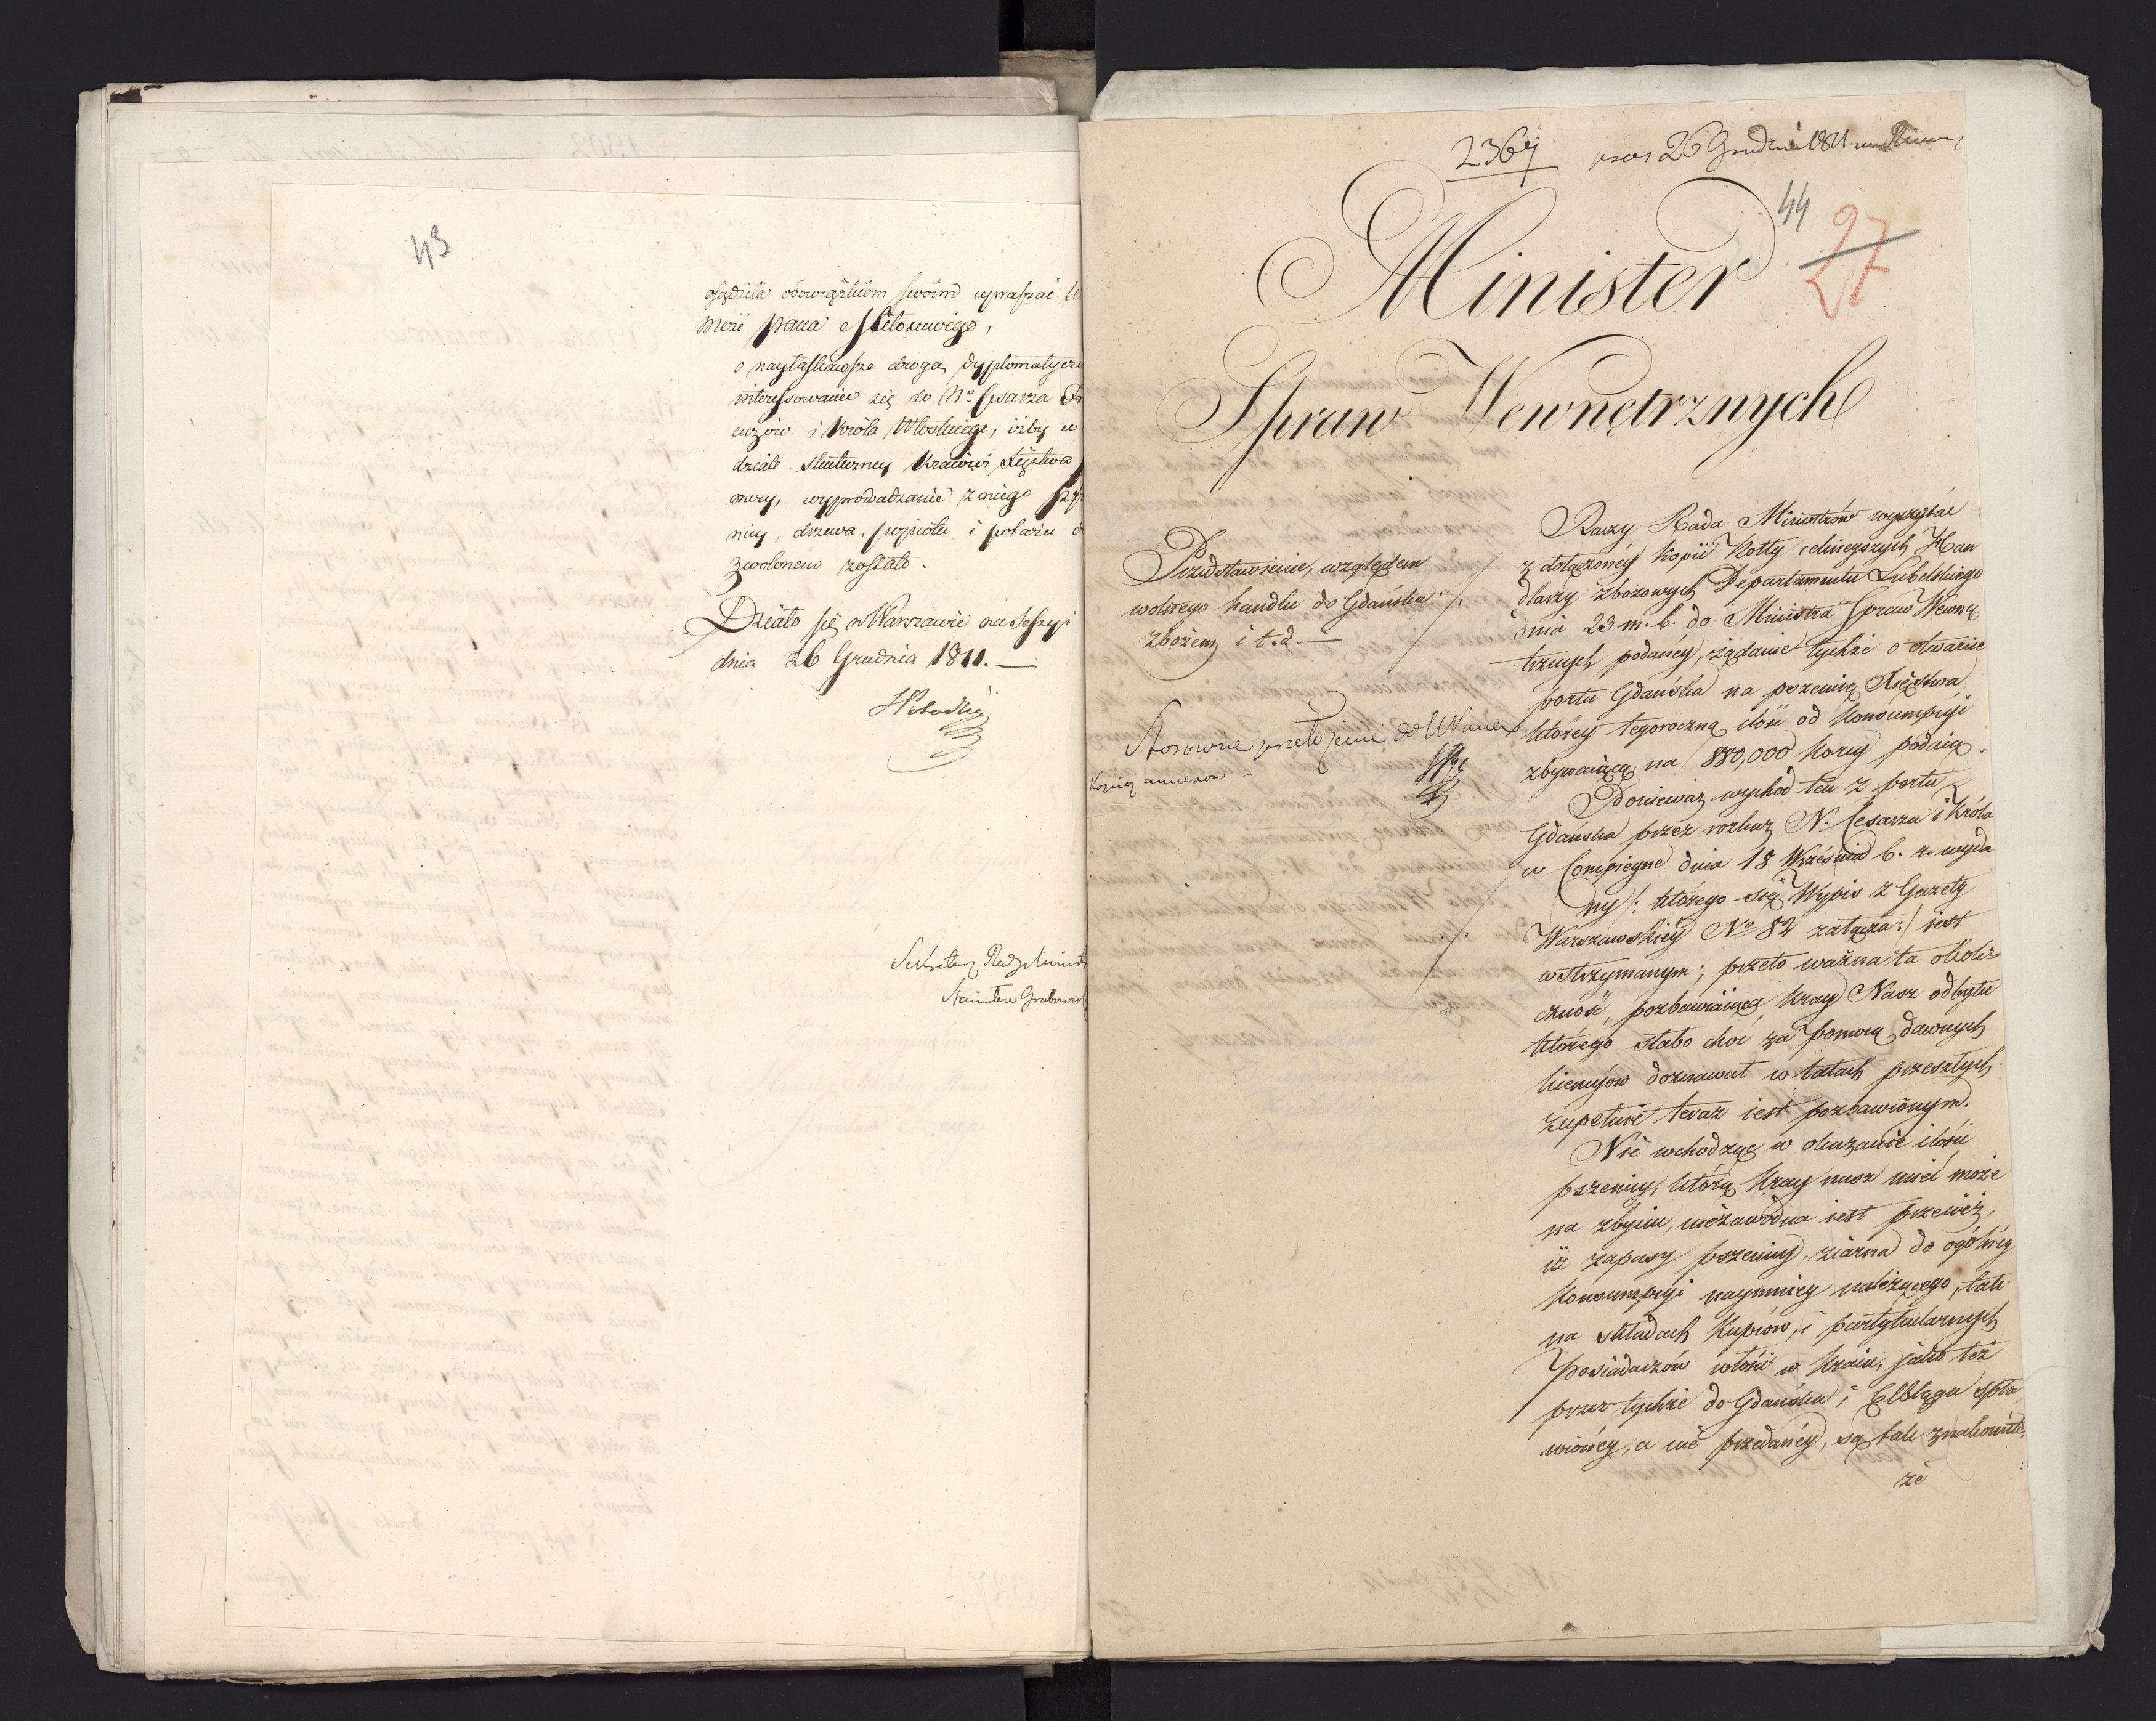 43
osądziła obowiązkiem swoim upraszać
Mość Pana Miłościwego,
o nayłaskawsze drogą dyplomatyczn
interessowanie się do No. Cesarza
cuzów i Króla Włoskiego, iżby w
dziale skuteczney Kraiowi Xięstwa
mocy, wyprowadzanie z niego
nicy, drzewa, popiołu i potażu
zwolonem zostało.
Działo się w Warszawie na Sessyi
dnia 26 Grudnia 1811. —
Sekretarz Rady Minist
Stanisław Grabows
26 Grudnia 1811
44
27
Minister
Spraw Wewnętrznych
Przedstawienie, względem
wolnego handlu do Gdańska
zbożem i t. d. —
Stosowne przełożenie do
Raczy Rada Ministrów wyczytać
z dołączoney kopii Notty celnieyszych Han
dlarzy zbożowych Departamentu Lubelskiego
dnia 23 m. b. do Ministra Spraw Wewnę
trznych podaney, żądanie tychże o otwarcie
portu Gdańska na pszenicę Xięstwa
którey tegoroczną ilość od konsumpcyi
zbywaiącą na 880,000 korcy podaią.
Ponieważ wychod ten z portu
Gdańska przez rozkaz N. Cesarza i Króla
w Compiegne dnia 18 Września b. r. wyda
ny /: którego się Wypis z Gazety
Warszawskiey No 82 załącza :/ iest
wstrzymanym; przeto ważna ta okoli
czność, pozbawiaiąca Kray Nasz odbytu
którego słabo choć za pomocą dawnych
licencyów doznawał w latach przeszłych
zupełnie teraz iest pozbawionym.
Nie wchodząc w okazanie ilości
pszenicy, którą Kray nasz mieć może
na zbyciu, niezawodna iest przecież,
iż zapasy pszenicy, ziarna do ogólney
Konsumpcyi naymniey należącego, tak
na składach Kupców, i partykularnych
Posiadaczów włości w Kraiu, jako też
przez tychże do Gdańska i Elbląga spła
wioney, a nie przedaney, są tak znakomite,
że